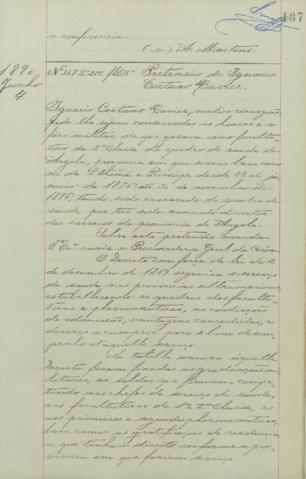 187
a conferencia.
(a) A. Martens.
1890
Junho
4
Pretensão de Ignacio
Caetano Xavier.
Ignacio Caetano Xavier, medico cirurgião,
pede lhe sejam conservadas as honras e o
foro militar de que gosava como faculta-
tivo de 2ª classe do quadro de saude de
Angola, provincia em que serviu bem como
na de S. Thomé e Principe desde 28 de ja-
neiro de 1876 até 20 de novembro de
1886, tendo sido exonerado do quadro de
saude por ter sido nomeado director
dos correios da provincia de Angola.
Sobre esta pretensão manda
V. Exª ouvir a Procuradoria Geral da Corôa.
O Decreto com força de lei de 2
de dezembro de 1869 organisa o serviço
de saude nas provincias ultramarinas,
estabelecendo os quadros dos faculta-
tivos e pharmaceuticos, as condições
de admissão, vantagens concedidas, e
deveres a cumprir para o bom desem-
penho d'aquelle serviço.
Na tabella annexa áquelle
Decreto foram fixadas as graduações mi-
litares, os soldos que ficavam compe-
tindo aos chefes do serviço de saude,
aos facultativos de 1ª e 2ª classe, e
aos primeiros e segundos pharmaceuticos,
bem como as gratificações de residencia
a que tinham direito conforme a pro-
vincia em que fariam serviço.